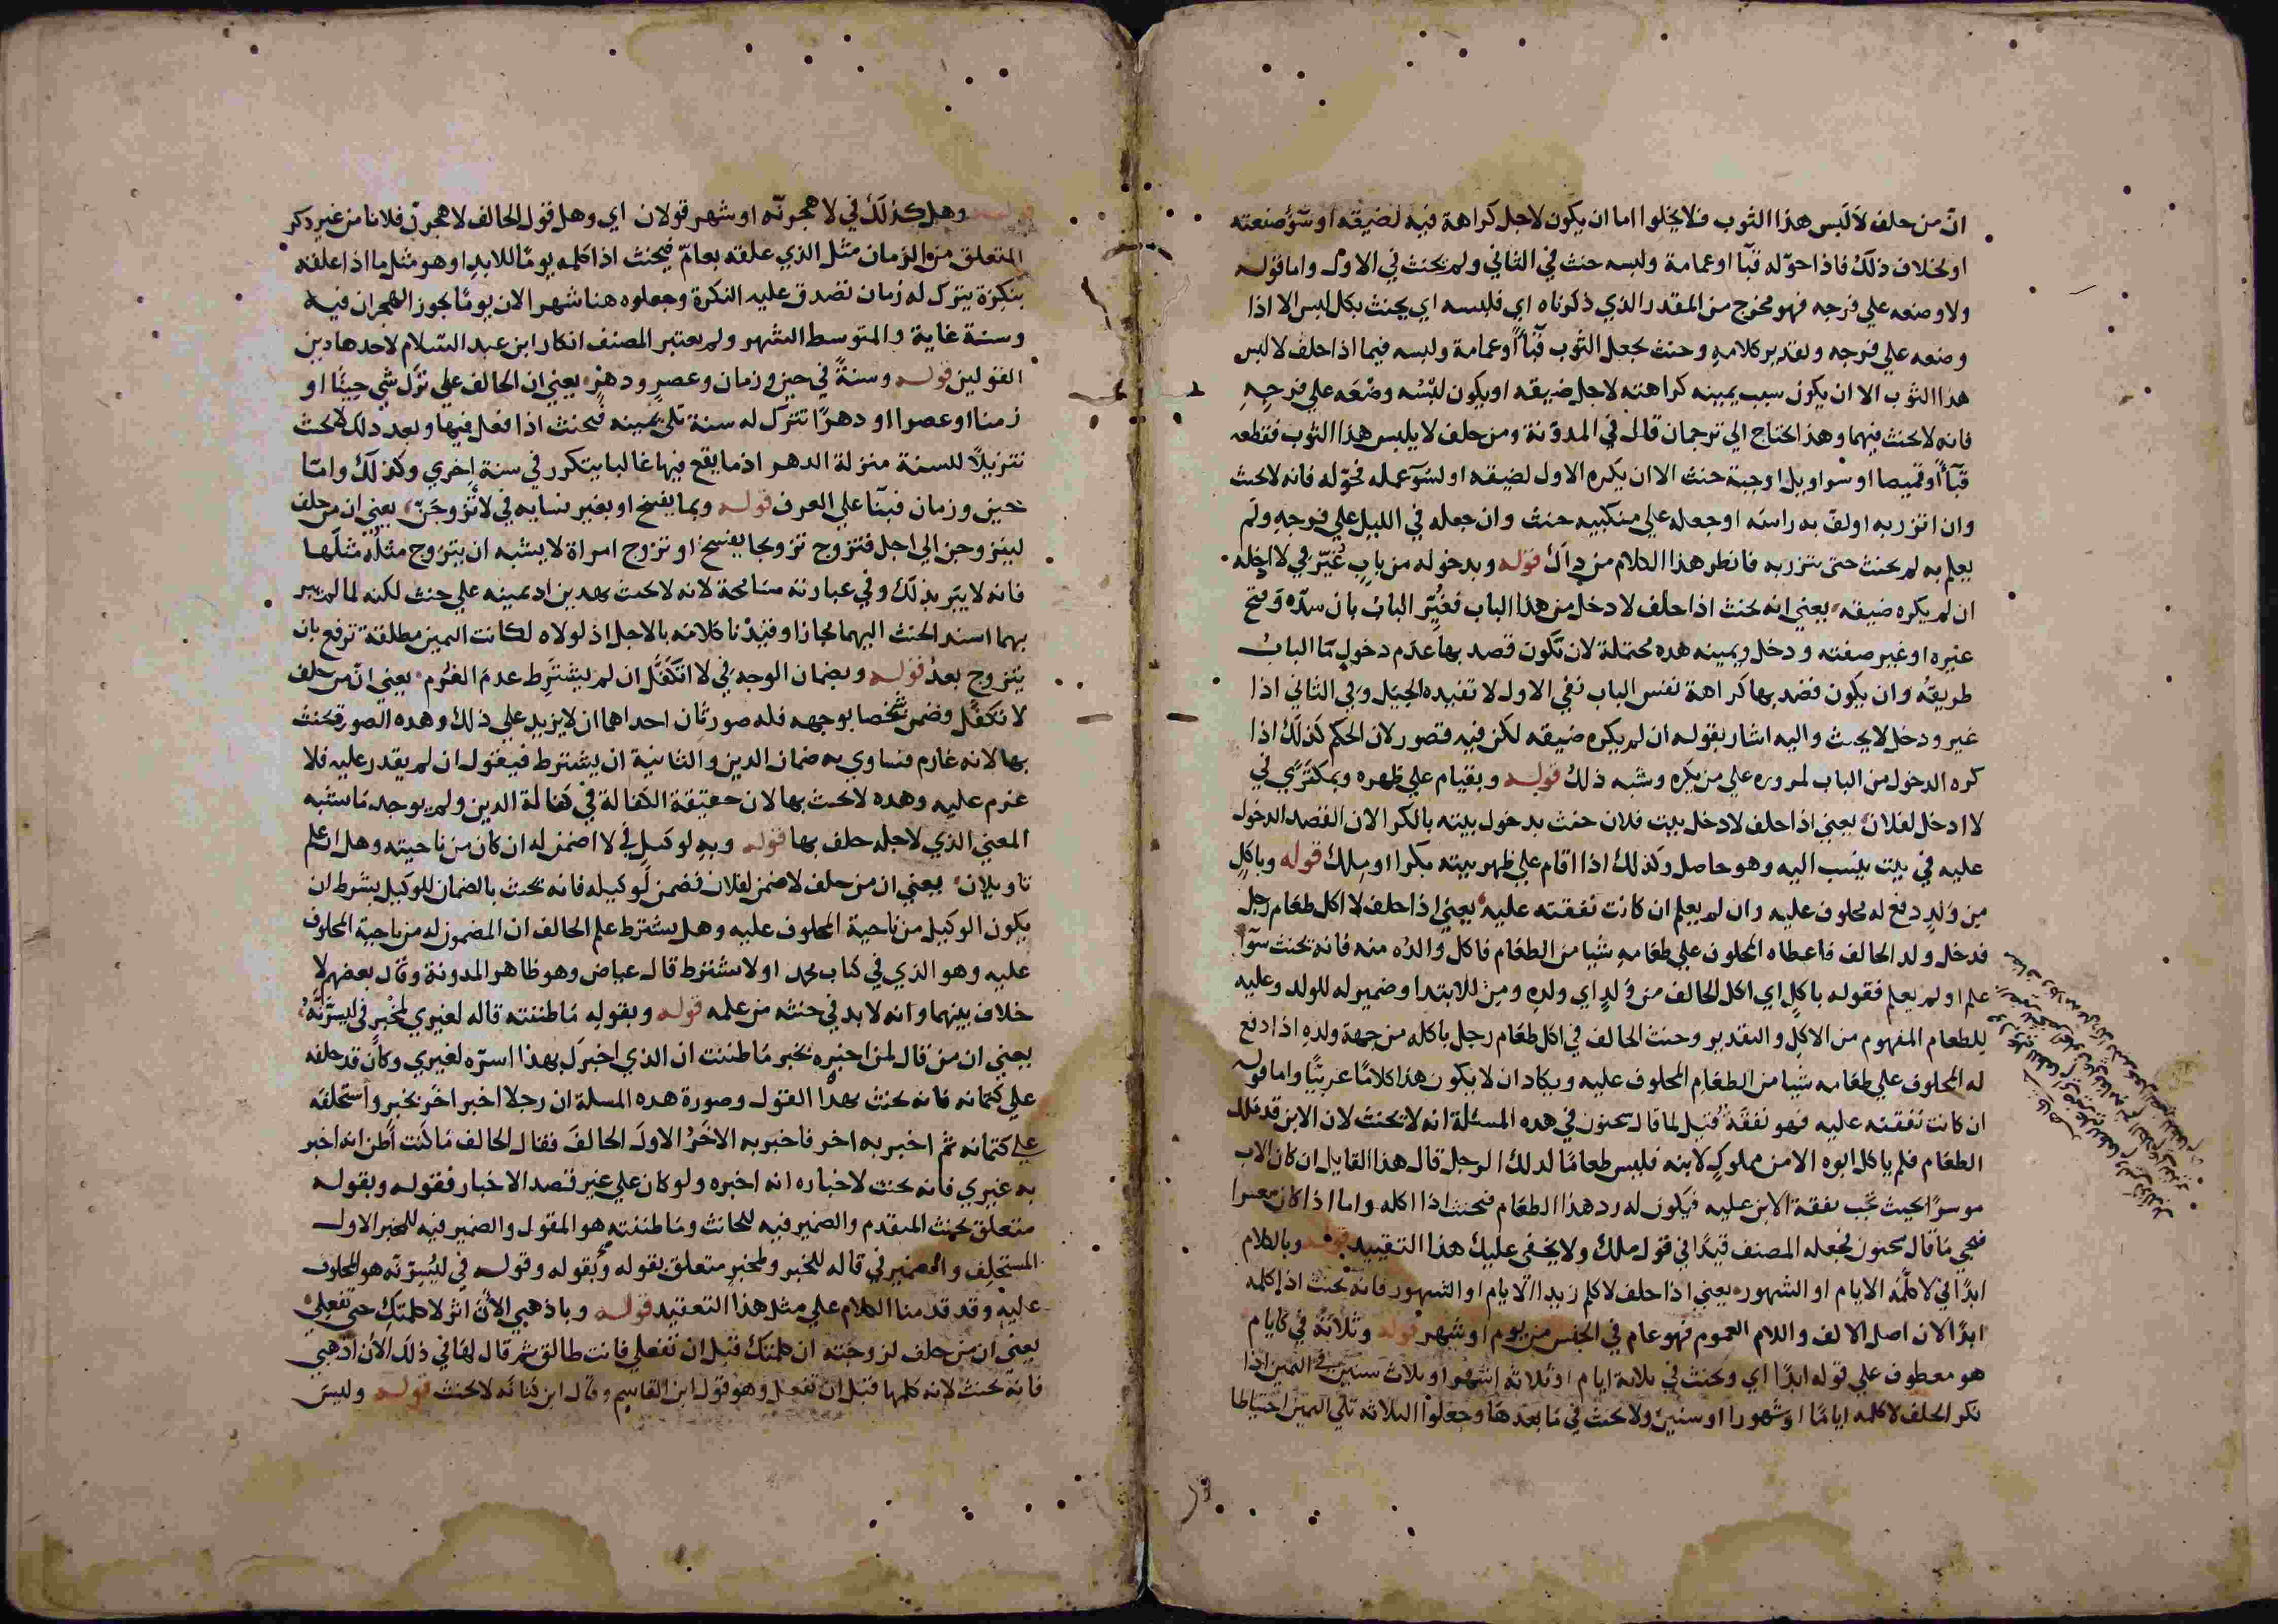 انّ من حلف لا لبس هذا الثوب فلا يخلوا اما ان يكون لاجل كراهة فيه لضيقه او سوٓء صنعته
او لخلاف ذلك فاذا حوّله قبآ او عمامة ولبسه حنث في الثاني ولم يحنث في الاول واما قوله
ولا وضعه علي فرجه فهو مخرج من المقدر الذي ذكرناه اي فلبسه اي يحنث بكل لبس الا اذا
وضعه علي فرجه وتقدير كلامه وحنث بجعل الثوب قبآأً او عمامة ولبسه فيما اذا حلف لا لبس
هذا الثوب الا ان يكون سبب يمينه كراهته لاجل ضيقه او يكون لبْسُه وضْعَه علي فرجِهِ
فانه لا يحنث فيهما وهذا يحتاج الي ترجمان قال في المدوّنة ومن حلف لا يلبس هذا الثوب فقطعه
قبآأً او قميصا او سراويل او جبة حنث الا ان يكره الاول لضيقه او لسوٓء عمله فحوّله فانه لا يحنث
وان اتزر به او لفّ به راسه او جعله علي منكبيه حنث وان جعله في الليل علي فرجه ولم
يعلم به لم يحنث حتي يتزر به فانظر هذا الكلام من ذاك قوله وبدخوله من بابٍ غُيّر في لا ادخله
ان لم يكره ضيقه يعني انه يحنث اذا حلف لا دخل من هذا الباب فغُيّر الباب بان سدّه وفتح
غيره او غير صفته ودخل ويمينه هذه محتملة لان تكون قصد بها عدم دخول ما الباب
طريقه وان يكون قصد بها كراهة نفس الباب ففي الاول لا تفيده الحيل وفي الثاني اذا
غير ودخل لا يحنث واليه اشار بقوله ان لم يكره ضيقه لكن فيه قصور لان الحكم كذلك اذا
كره الدخول من الباب لمروره علي من يكره وشبه ذلك قوله وبقيام علي ظهره وبمكترًي في
لا ادخل لفلان يعني اذا حلف لا دخل بيت فلان حنث بدخول بيته بالكرا لان القصد الدخول
عليه في بيت ينسب اليه وهو حاصل وكذلك اذا اقام علي ظهر بيته بكرا او بملك قوله وباكلٍ
من ولدٍ دفع له محلوف عليه وان لم يعلم ان كانت نفقته عليه يعني اذا حلف لا اكل طعام رجل
فدخل ولد الحالف فاعطاه المحلوف علي طعامه شيا من الطعام فاكل والده منه فانه يحنث سوٓا
علم او لم يعلم فقوله باكلٍ اي اكل الحالف من ولدٍ اي ولده ومن للابتدا وضمير له للولد وعليه
للطعام المفهوم من الاكل والتقدير وحنث الحالف في اكل طعام رجل باكله من جهة ولده اذا دفع
له المحلوف علي طعامه شيا من الطعام المحلوف عليه ويكاد ان لا يكون هذا كلامًا عربيًّا واما قوله
ان كانت نفقته عليه فهو نفقة قيل لما قال سحنون في هذه المسئلة انه لا يحنث لان الابن قد ملك
الطعام فلم ياكل ابوه الا من مملوك لابنه فليس طعامًا لذلك الرجل قال هذا القايل ان كان الاب
موسرًا بحيث تجب نفقة الابن عليه فيكون له رد هذا الطعام فيحنث اذا اكله واما اذا كان معسرا
فيجي ما قال سحنون فجعله المصنف قيدًا في قول ملك ولا يخفي عليك هذا التقييد قوله وبالكلام
ابدًا في لا كلّمه الايام او الشهور يعني اذا حلف لا كلم زيدا الايام او الشهور فانه يحنث اذا كلمه
ابدًا لان اصل الالف واللام العموم فهو عام في الجنس من يوم او شهر قوله وثلاثة في كايام
هو معطوف علي قوله ابدًا اي ويحنث في ثلاثة ايام او ثلاثة اشهر او ثلاث سنين في اليمين اذا
نكر الحلف لا كلمه ايامًا او شهورا او سنين ولا يحنث في ما بعدها وجعلوا الثلاثة تلي اليمين احتياطا
وهل كذلك في لاهجرنّه او شهر قولان اي وهل قول الحالف لاهجرنّ فلانا من غير ذكر
المتعلق من الزمان مثل الذي علقه بعامّ فيحنث اذا كلمه يومًا للابد او هو مثل ما اذا علقه
بنكرة يترك له زمان تصدق عليه النكرة وجعلوه هنا شهر الان يومًا يجوز الهجران فيه
وسنة غاية والمتوسط الشهر ولم يعتبر المصنف انكار ابن عبد السلام لاحد هاذين
القولين قوله وسنةً في حينٍ وزمان وعصرٍ ودهرٍ يعني ان الحالف علي ترك شي حينًا او
زمنا او عصرا او دهرًا تترك له سنة تلي يمينه فيحنث اذا فعل فيها وبعد ذلك لا يحنث
تنزيلًا للسنة منزلة الدهر اذ ما يقع فيها غالبا يتكرر في سنة اخري وكذلك وامّا
حين وزمان فبنآ علي العرف قوله وبما يفسخ او بغير نسايه في لاتزوجَنّ يعني ان من حلف
ليتزوجن الي اجل فتزوج تزوجا يفسخ او تزوج امراة لا يشبه ان يتزوج مثلُه مثلَها
فانه لا يبرّ بذلك وفي عبارته مسامحة لانه لا يحنث بهذين اذ يمينه علي حنث لكنه لما لم يبر
بهما اسند الحنث اليهما مجازا وقيّدنا كلامه بالاجل اذ لولاه لكانت اليمين مطلقة ترفع بان
يتزوج بعدُ قوله وبضمان الوجه في لا اتكفّل ان لم يشترط عدم الغُرم يعني انّ من حلف
لا تكفّل وضمن شخصا بوجهه فله صورتان احداهما ان لا يزيد علي ذلك وهذه الصورة يحنث
بها لانه غارم فتساوي به ضمان الدين والثانية ان يشترط فيقول ان لم يقدر عليه فلا
غرم عليه وهذه لا يحنث بها لان حقيقة الكفالة في كفالة الدين ولم يوجد ما يشبه
المعني الذي لاجله حلف بها قوله وبه لوكيلٍ في لا اضمن له ان كان من ناحيته وهل ان علم
تاويلان يعني ان من حلف لا ضمن لفلان فضمن لوكيله فانه يحنث بالضمان للوكيل بشرط ان
يكون الوكيل من ناحية المحلوف عليه وهل يشترط علم الحالف ان المضمون له من ناحية المحلوف
عليه وهو الذي في كتاب محمد او لا يشترط قال عياض وهو ظاهر المدونة وقال بعضهم لا
خلاف بينهما وانه لا بد في حنثه من علمه قوله وبقوله ما ظننته قاله لغيري لمخبر في ليسرّنَّه
يعني ان من قال لمن اخبره بخبر ما ظننت ان الذي اخبرك بهذا اسرّه لغيري وكان قد حلفه
علي كتمانه فانه يحنث بهذا القول وصورة هذه المسلة ان رجلا اخبر اخر بخبر واستحلفه
علي كتمانه ثم اخبر به اخر فاخبر به الاخَرُ الاولَ الحالفَ فقال الحالف ما كنت اظن انه اخبر
به غيري فانه يحنث لاخباره انه اخبره ولو كان علي غير قصد الاخبار فقوله وبقوله
متعلق بحنث المتقدم والضمير فيه للحانث وما ظننته هو المقول والضمير فيه للمخبر الاول
المستحلِف والضمير في قاله للخبر ولمخبرٍ متعلق بقوله وبقوله وقوله في ليُسِرّنّه هو المحلوف
عليه وقد قدمنا الكلام علي مثل هذا التعقيد قوله وباذهبي الآن اثر لا كلمتك حتي تفعلي
يعني ان من حلف لزوجته ان كلمتك قبل ان تفعلي فانت طالق ثم قال لها في ذلك الان اذهبي
فانه يحنث لانه كلمها قبل ان تفعل وهو قول ابن القاسم وقال ابن كنانه لا يحنث قوله وليس